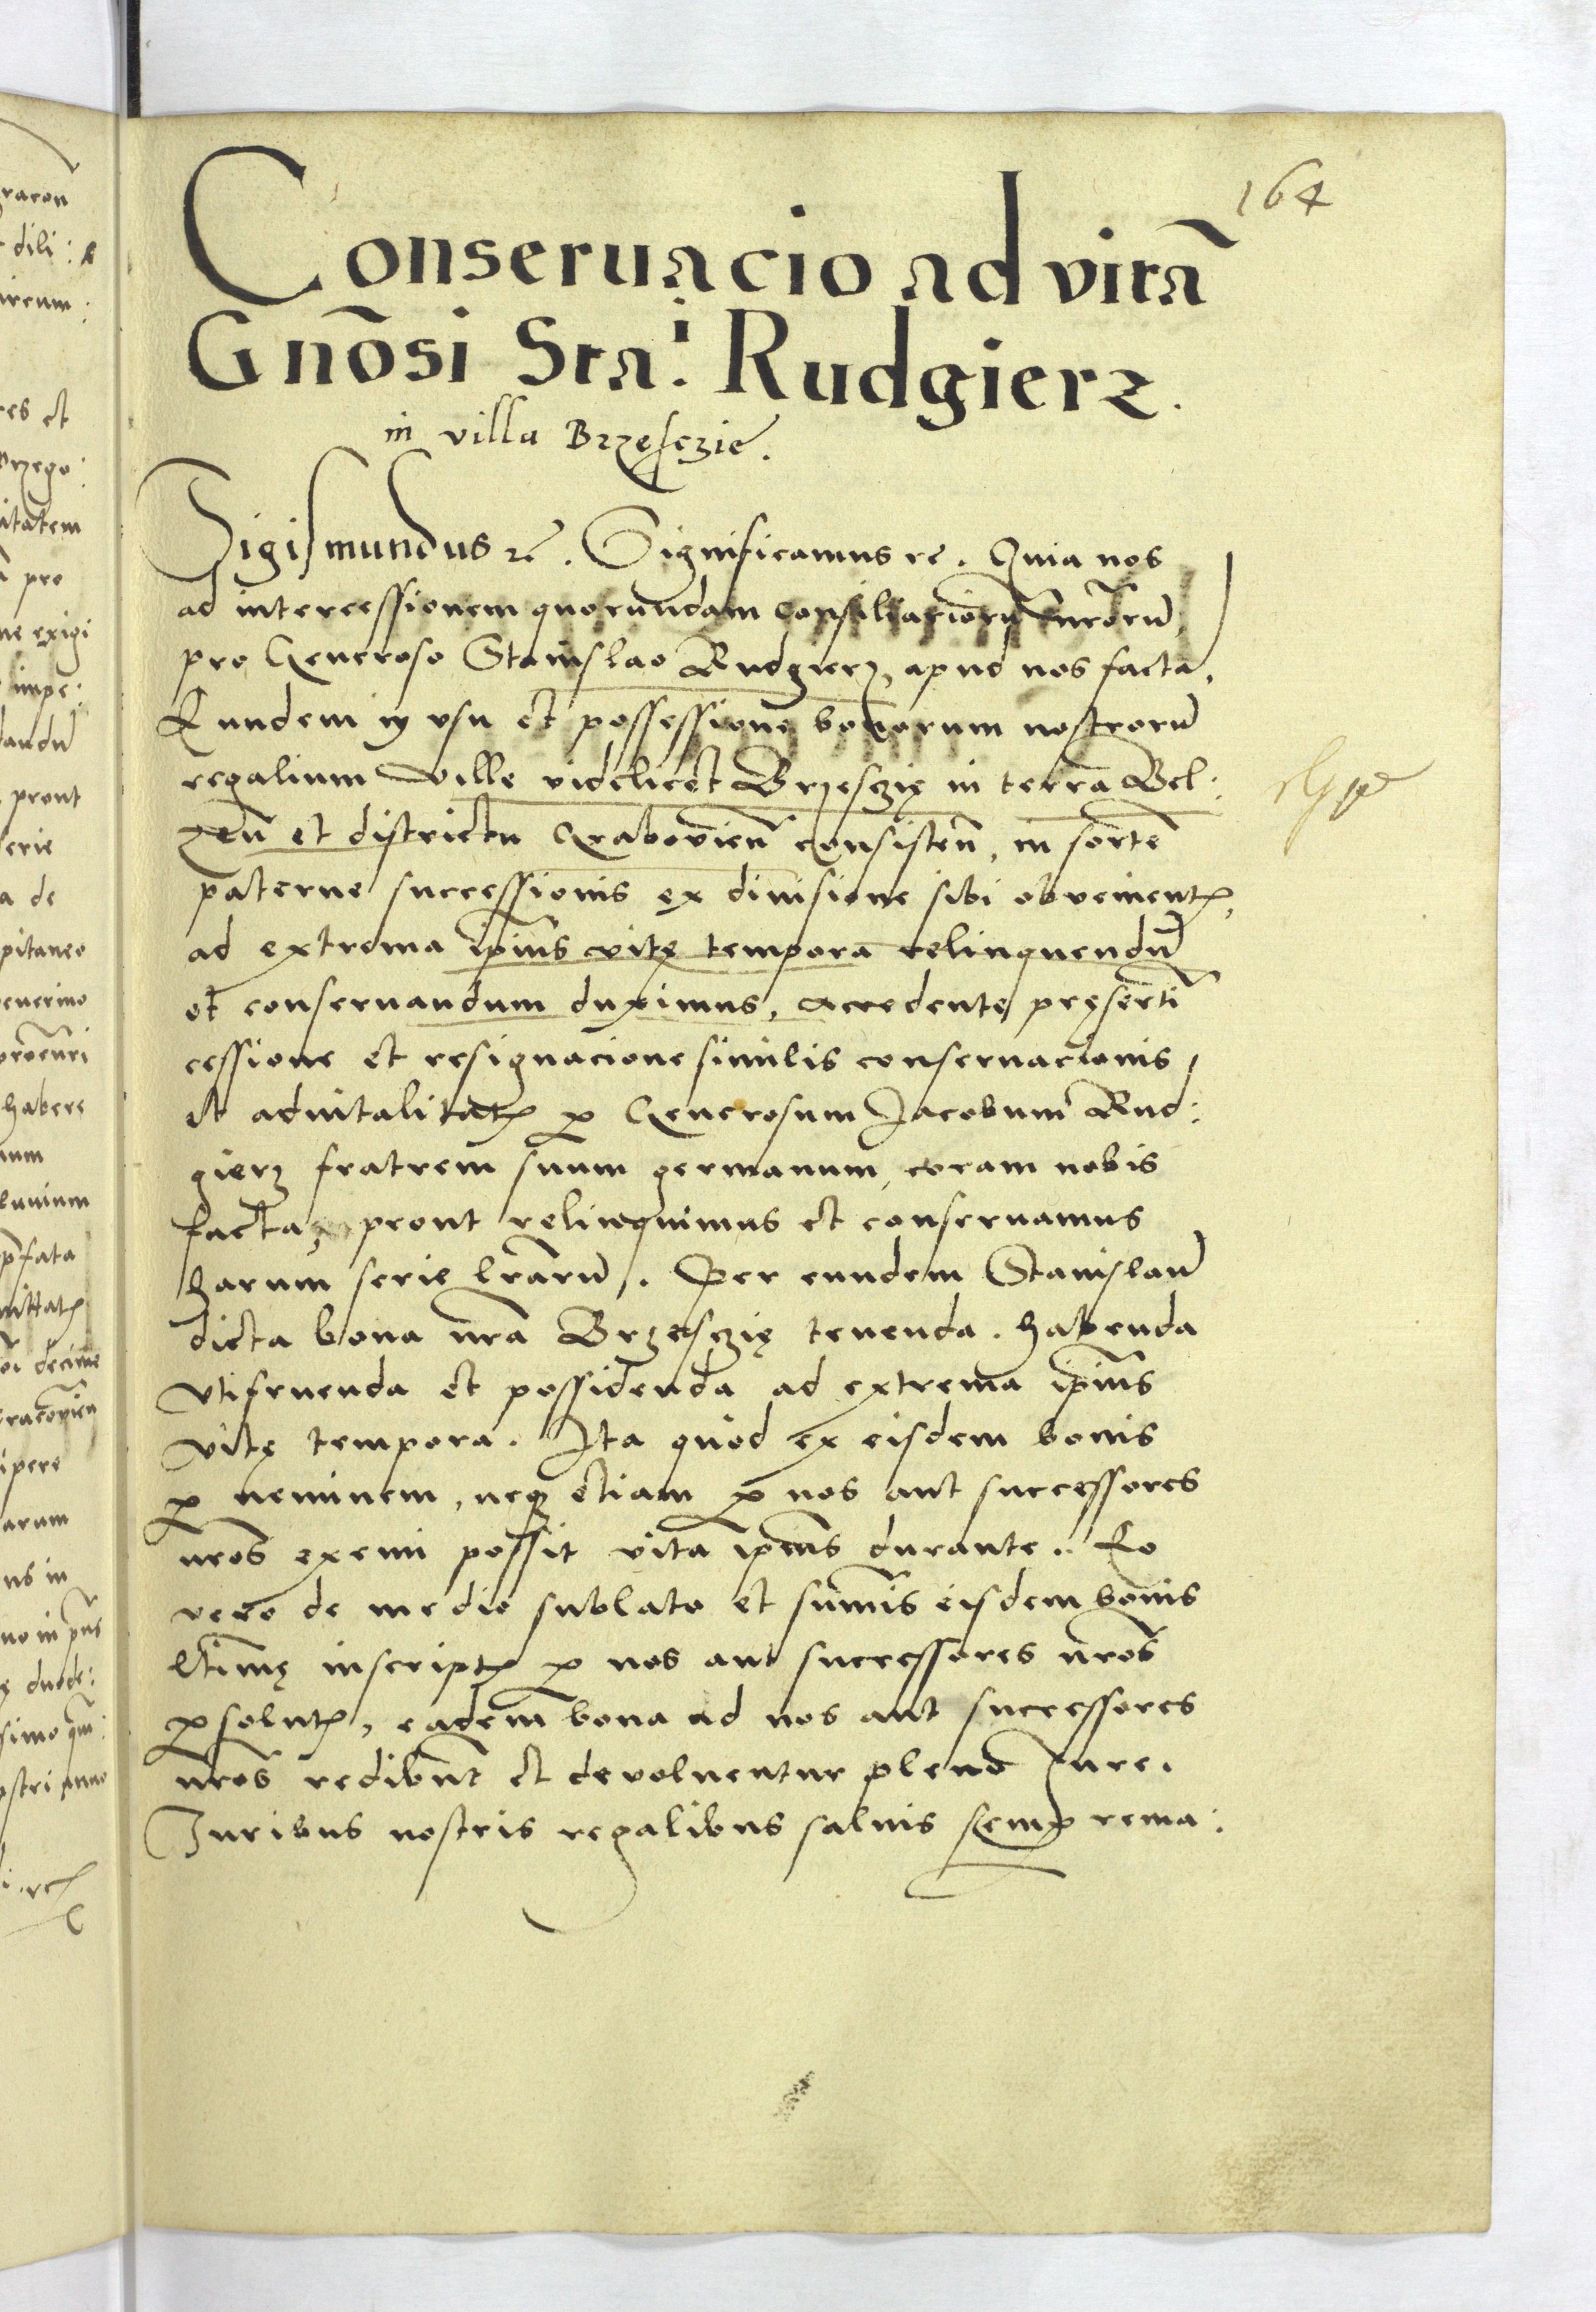 164
Conseruacio ad vitā
Gnōsi Sta: Rudgierz.
in villa Brzesczie.
Sigismundus rc. Significamus rc. Quia nos
ad intercessionem quorundam Consiliariorū Nrōrū,
pro Generoso Stanislao Rudgierz, apud nos facta,
Eundem in vsu et possessione bonorum nostrorū
regalium ville videlicet Brzesczię in terra Bel:
zeñ et districtu Grabovieñ consisteñ, in sortē
paterne successionis ex diuisione sibi obvenient,
ad extrema ipīus vitę tempora relinquendū
et conseruandum duximus, accedente pręsertī
cessione et resignacione similis conseruacionis
et aduitalitat p Generosum Jacobum Rud:
gierz fratrem suum germanum, coram nobis
facta, prout relinquimus et conseruamus
harum serie lrārū. Per eundem Stanislaū
dicta bona nrā Brzesczię tenenda. habenda
vtifruenda et possidenda ad extrema ipīus
vitę tempora. Ita quod ex eisdem bonis
p neminem, neq etiam p nos aut successores
nrōs exemi possit vita ipīus durante. Eo
vero de medio sublato et summīs eisdem bonis
ltīmę inscript p nos aut successores nrōs
psolut, eadem bona ad nos aut successores
nrōs redibūt et devoluentur pleno Jure.
Juribus nostris regalibus saluis semp rema: